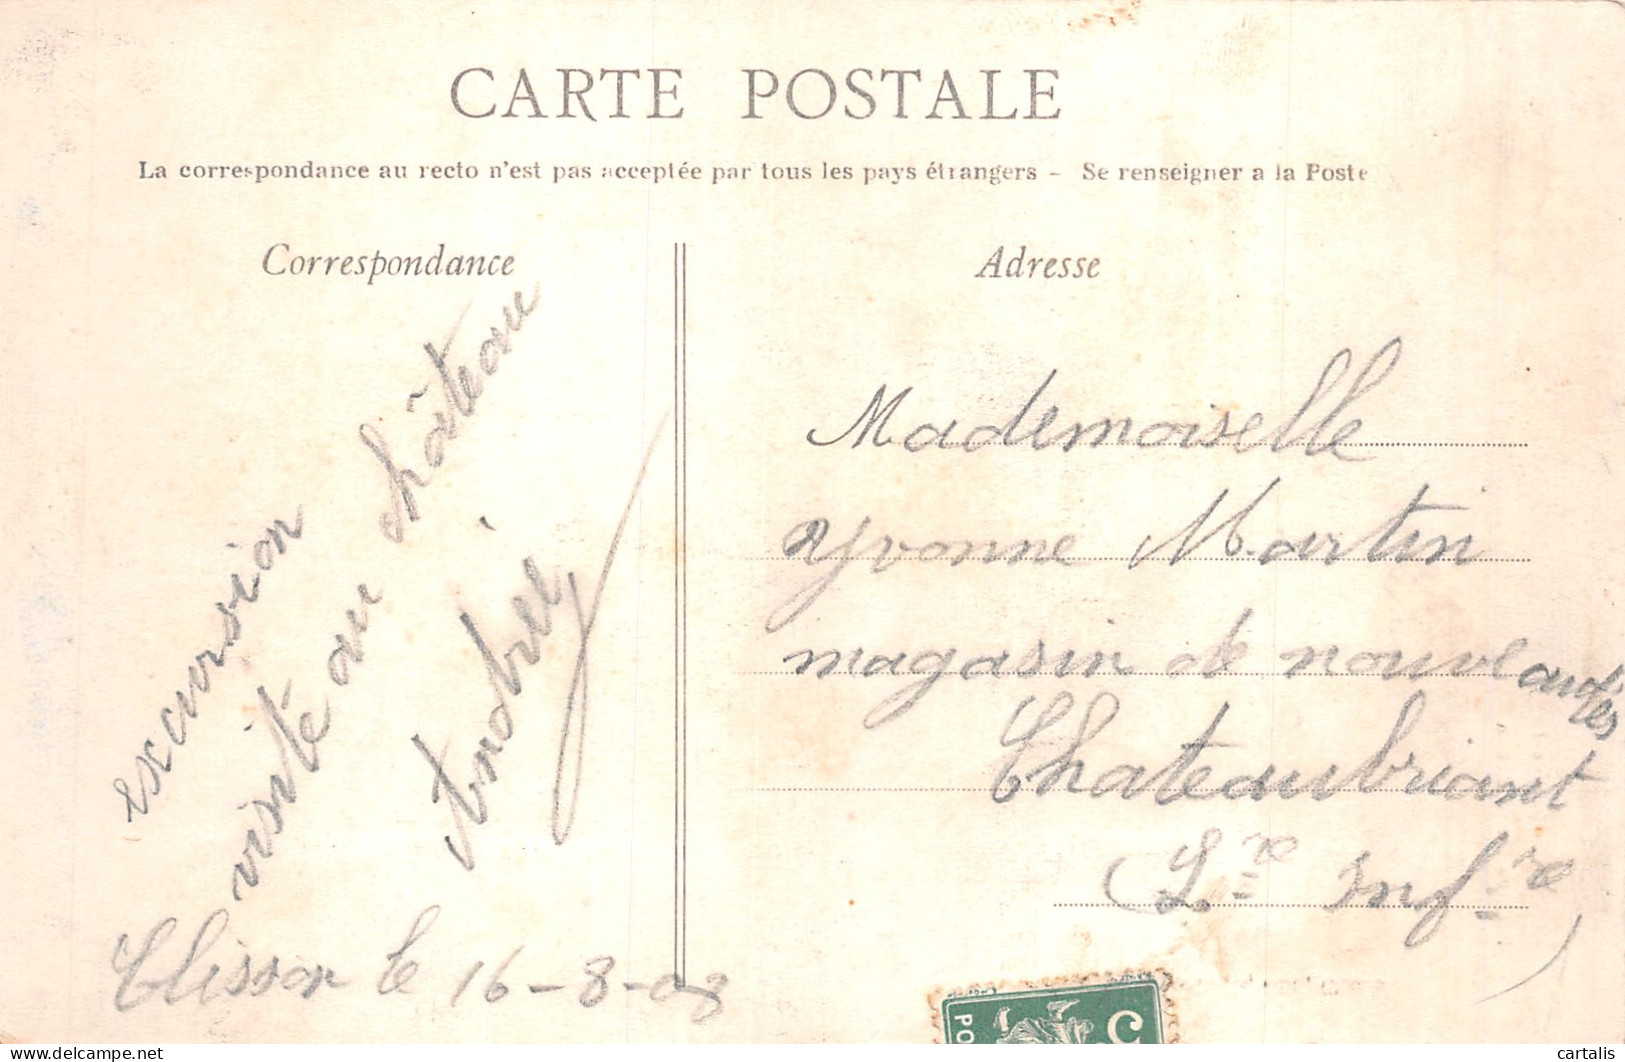 CARTE POSTALE
La correspondance au recto n'est pas acceptée par tous les pays étrangers – Se renseigner a la Poste
Correspondance
excursion
visité au château
Andrée
Clisson le 16-8-08
Adresse
Mademoiselle
Yvonne Martin
magasin de nouveautés
Chateaubriant
(L.re Inf.re)
5
PO
cartalis
delcampe.net